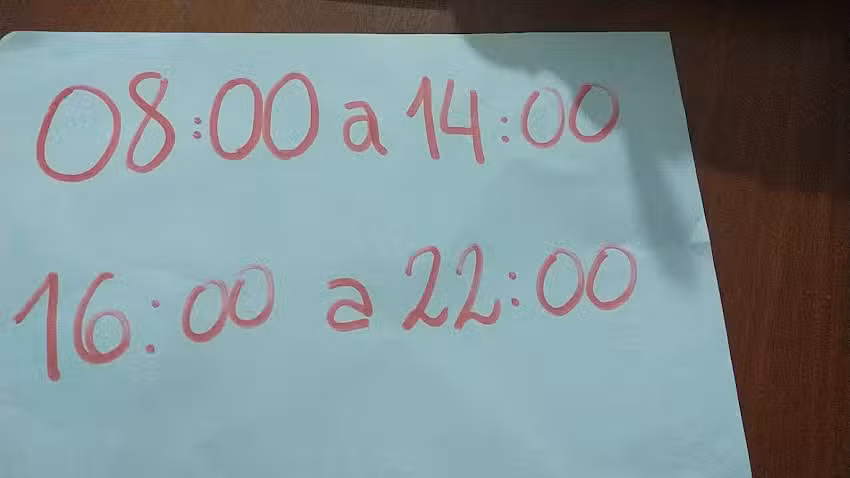 08:00 a 14:00
16:00 a 22:00